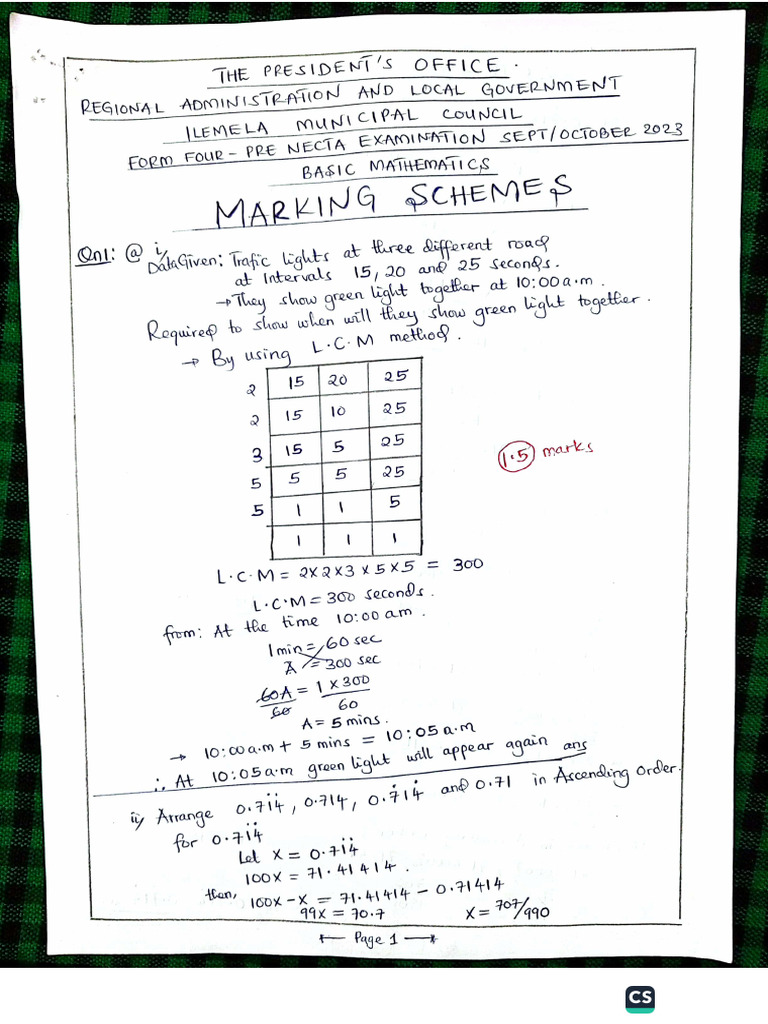 THE PRESIDENT'S OFFICE.
REGIONAL ADMINISTRATION AND LOCAL GOVERNMENT
ILEMELA MUNICIPAL COUNCIL
FORM FOUR - PRE NECTA EXAMINATION SEPT/OCTOBER 2023
BASIC MATHEMATICS
MARKING SCHEMES
Qn1: @ i/
Data Given: Trafic lights at three different road
at Intervals 15, 20 and 25 seconds.
→ They show green light together at 10:00 a.m.
Required to show when will they show green light together.
→ By using L.C.M method.
2 15 20 25
2 15 10 25
3 15 5 25
5 5 5 25
5 1 1 5
1 1 1
1.5 marks
L.C.M = 2X2X3 x 5 x 5 = 300
L.C.M = 300 seconds.
from: At the time 10:00 am.
1min = 60 sec
A = 300 sec
60A = 1 x 300
60 60
A = 5 mins.
→ 10:00 a.m + 5 mins = 10:05 a.m
∴ At 10:05 a.m green light will appear again ans
ii) Arrange 0.71̇4̇, 0.714, 0.7̇14̇ and 0.71 in Ascending Order.
for 0.71̇4̇
Let X = 0.71̇4̇
100X = 71.41414.
then, 100X - X = 71.41414 - 0.71414
99X = 70.7 X = 707/990
Page 1
CS